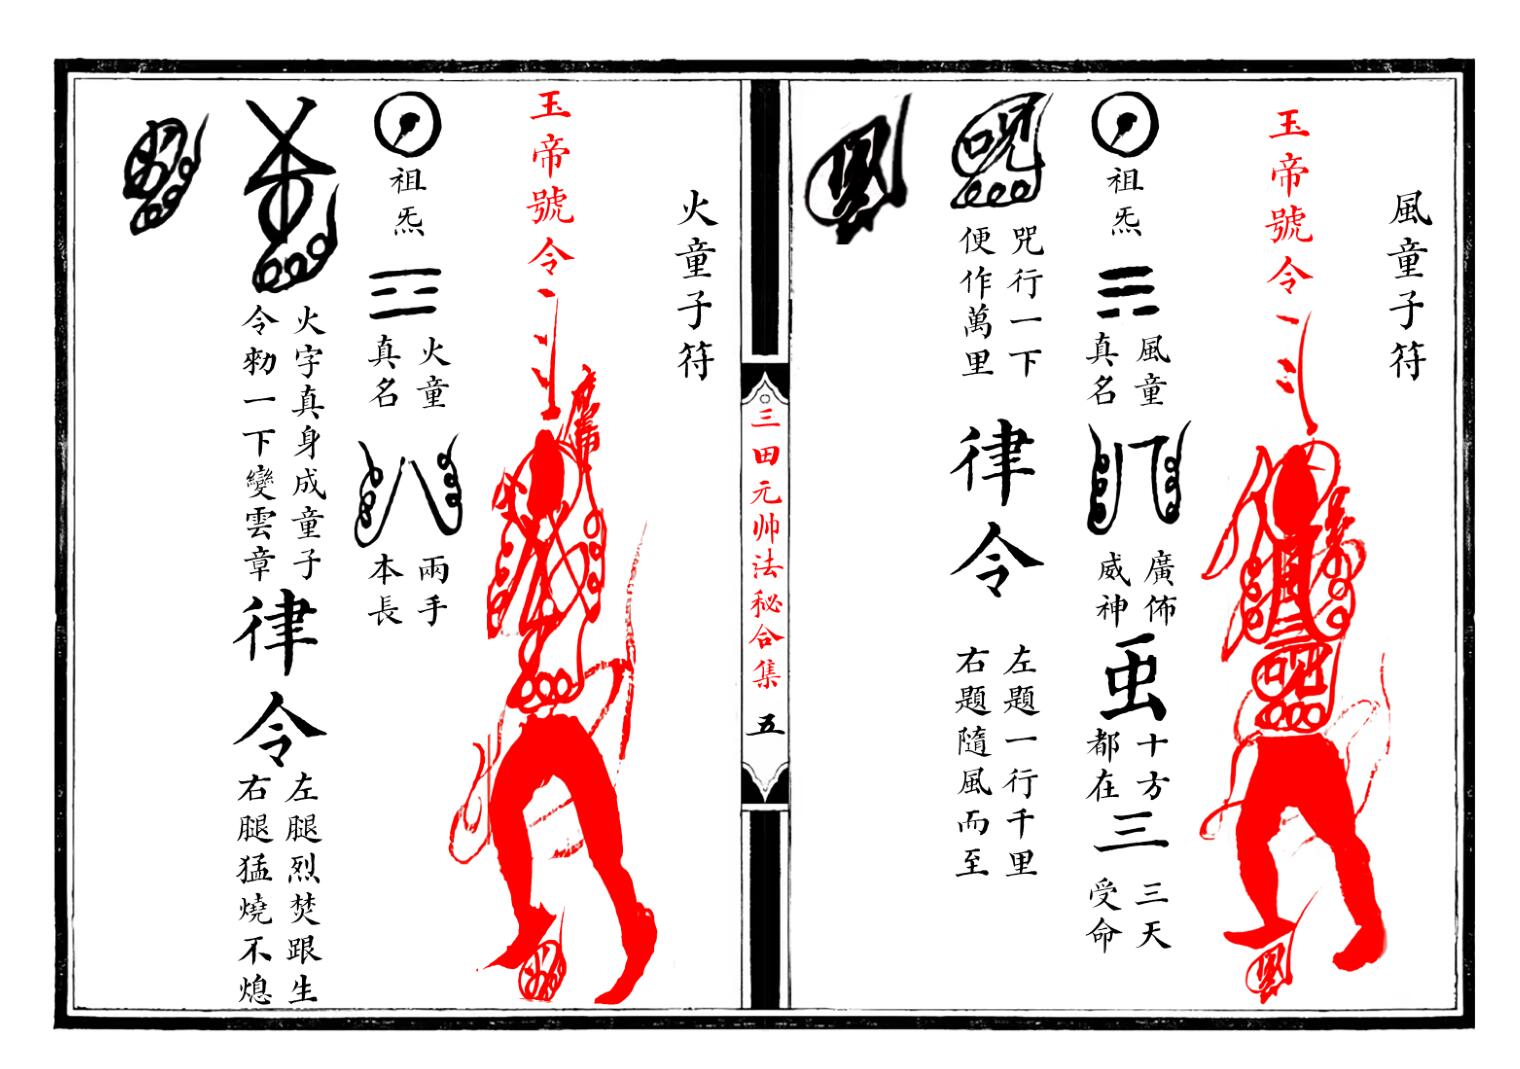 風童子符
玉帝號令
祖炁
風童
真名
廣佈
威神
䖝
十方
都在
三
三天
受命
咒行一下
便作萬里
律令
左題一行千里
右題隨風而至
三田元帅法秘合集
五
火童子符
玉帝號令
祖炁
火童
真名
八
兩手
本長
火字真身成童子
令勑一下變雲章
律令
左腿烈焚跟生
右腿猛燒不熄